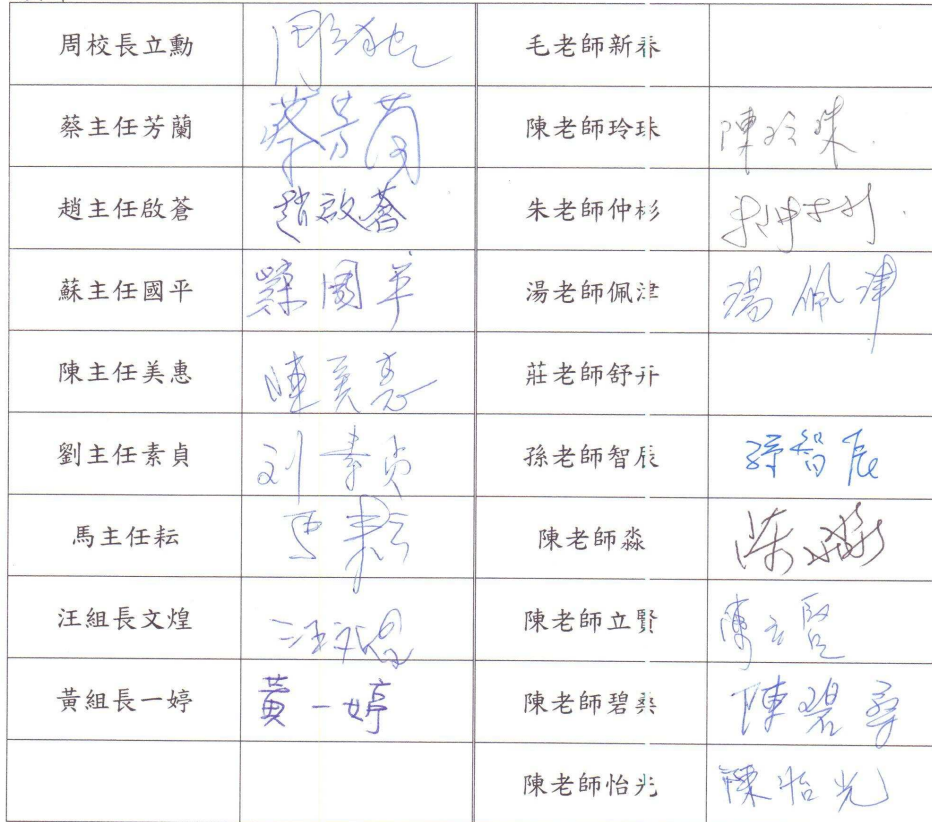 周校長立勳 周立勳 毛老師新春
蔡主任芳蘭 蔡芳蘭 陳老師玲珠 陳玲珠
趙主任啟蒼 趙啟蒼 朱老師仲杉 朱仲杉
蘇主任國平 蘇國平 湯老師佩津 湯佩津
陳主任美惠 陳美惠 莊老師舒卉
劉主任素貞 刘素貞 孫老師智辰 孫智辰
馬主任耘 馬耘 陳老師淼 陈淼
汪組長文煌 汪文煌 陳老師立賢 陳立賢
黃組長一婷 黃一婷 陳老師碧桑 陳碧桑
陳老師怡光 陳怡光